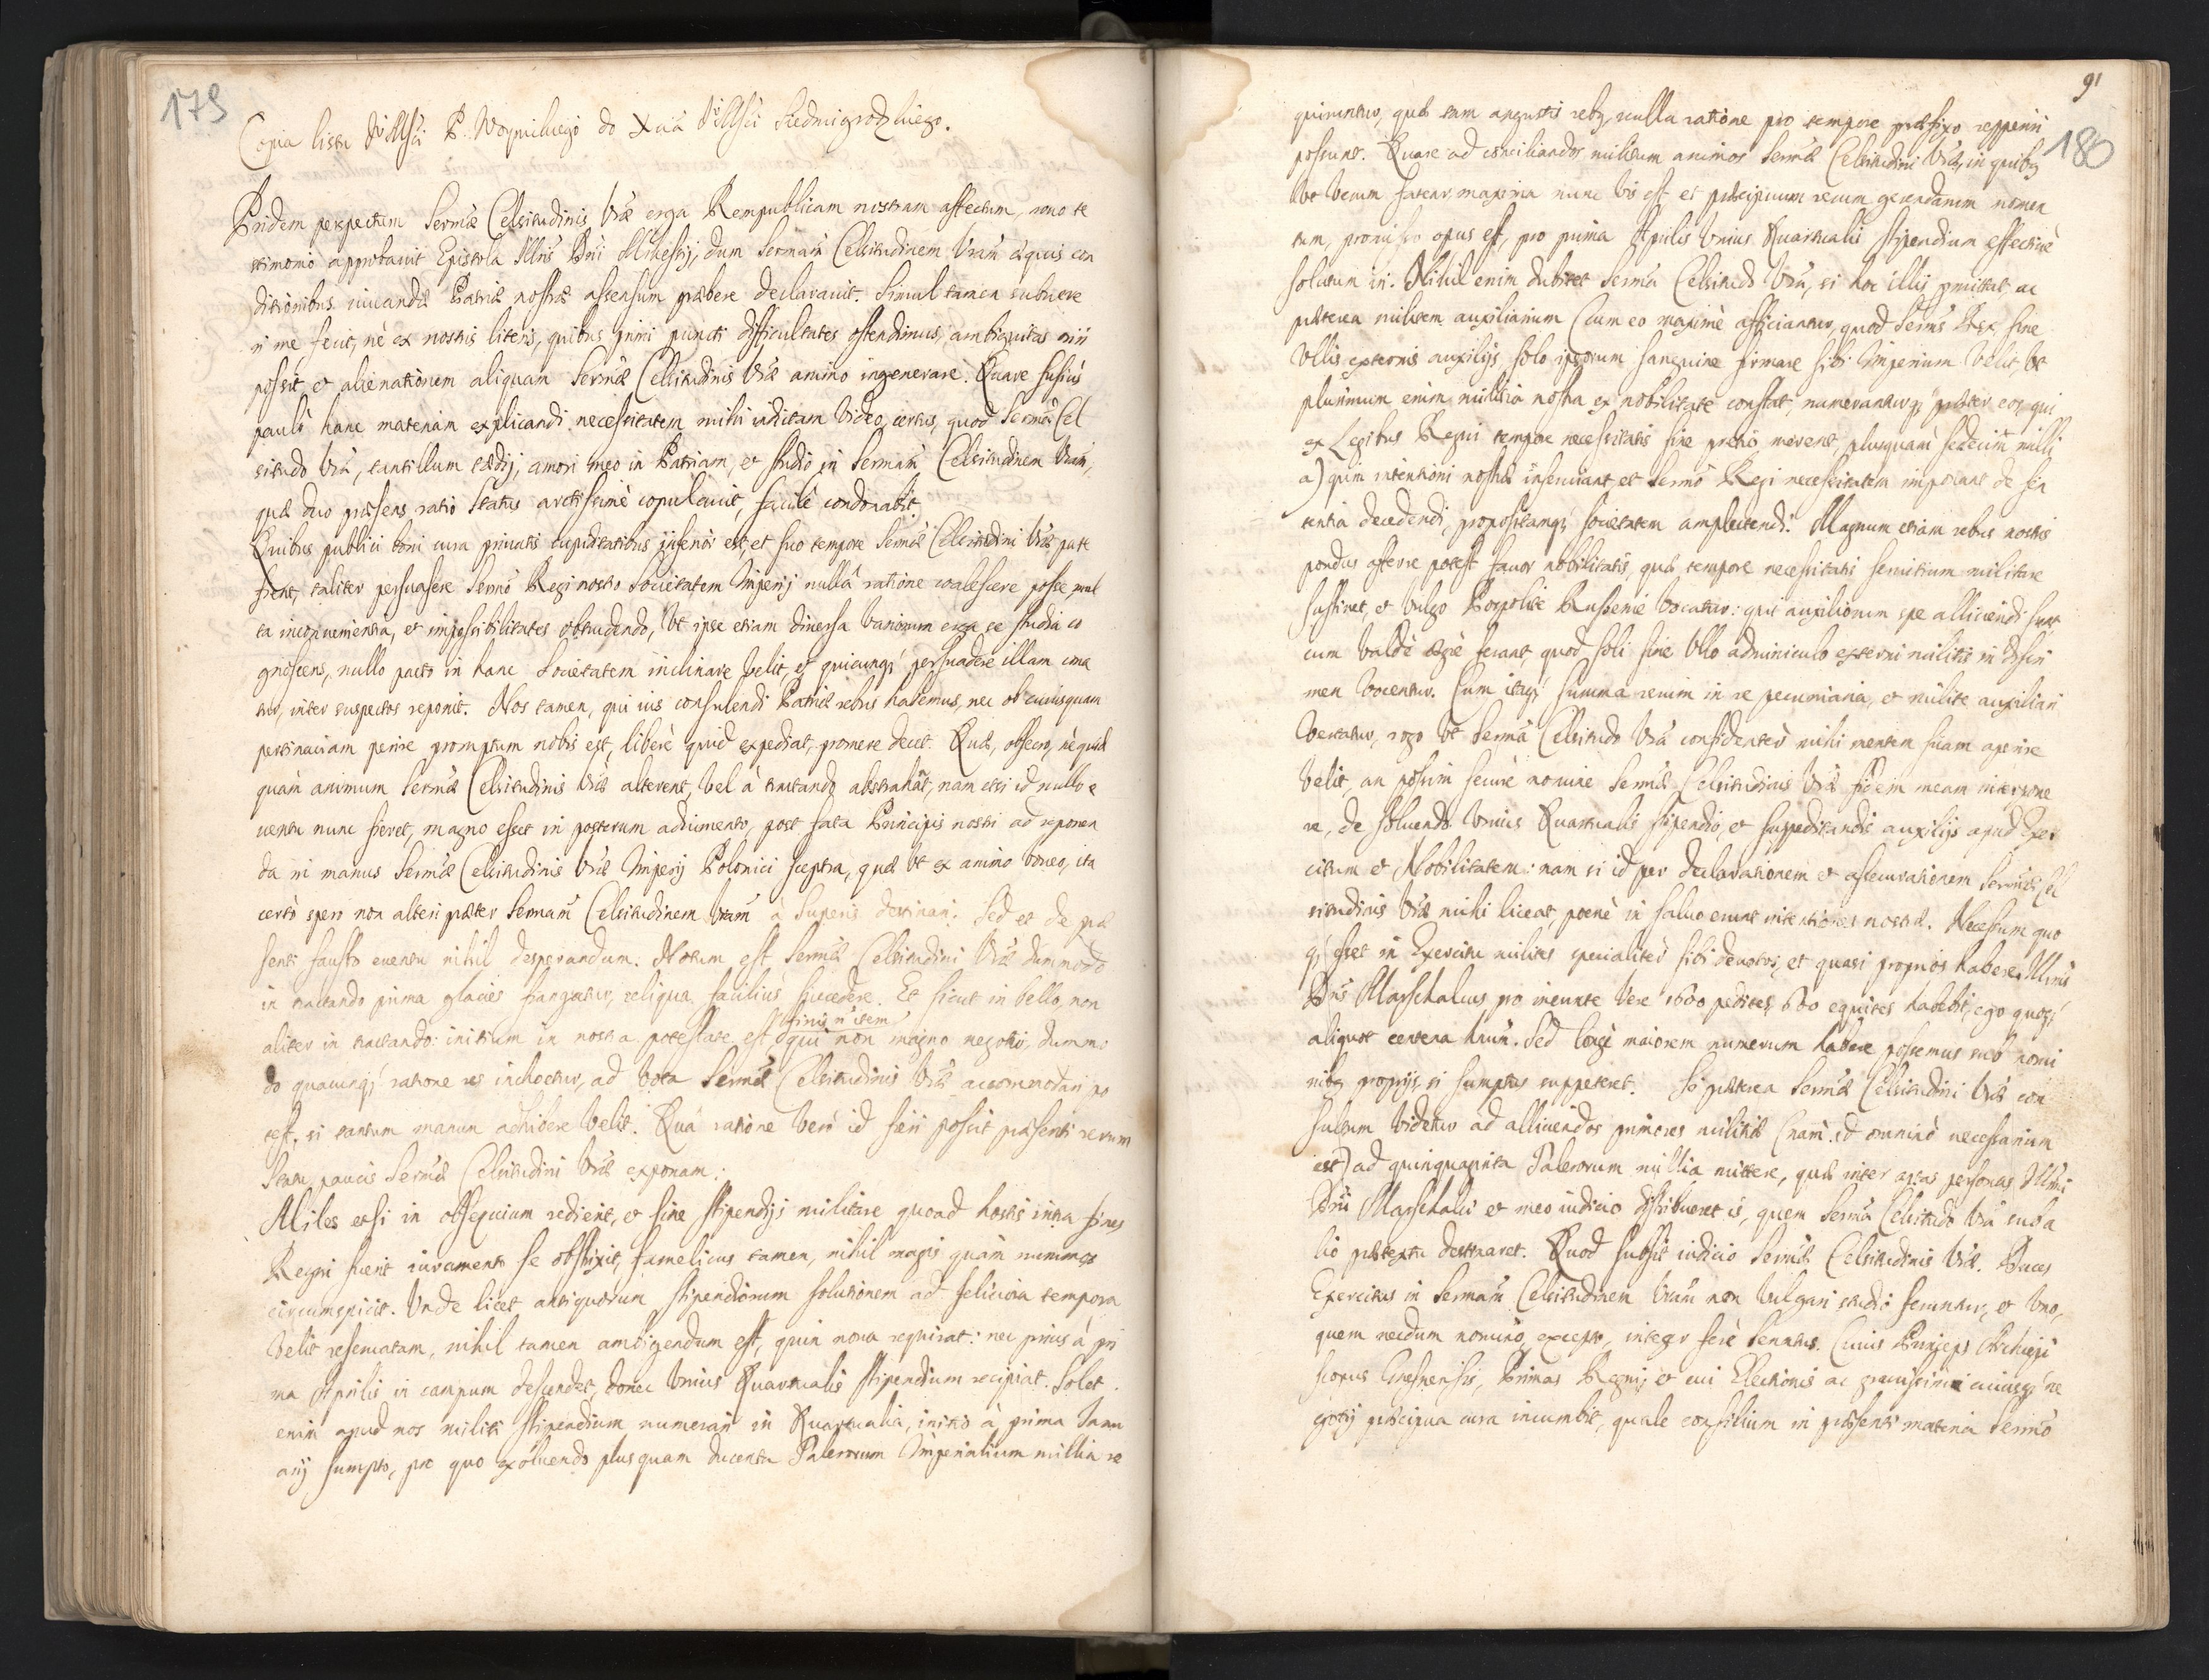 179
Copia listu JWMści P. Woyniłłowego do Xcia JMści Siedmigrodzkiego.
Pridem perspectum Sermæ Celsitudinis Vræ erga Rempublicam nostram affectum, nouo te
stimonio approbauit Epistola Illris Dni Minestij, dum Sermam Celsitudinem Vram æquis con
ditionibus iuuandæ Patriæ nostræ assensum præbere declarauit. Simul tamen subuere
ri me fecit, nè ex nostris literis, quibus primi puncti difficultates ostendimus, ambiguitas oriri
possit, et alienationem aliquam Sermæ Celsitudinis Vræ animo ingenerare. Quare fusius
paulò hanc materiam explicandi necessitatem mihi indictam video, certus, quod Serma Cel
situdo Vra, tantillum tædij, amori meo in Patriam, et studio in Sermam Celsitudinem Vram,
quæ duo præsens ratio Status arctissimè copulauit, facilè condonabit.
Quibus publici boni cura priuatis cupiditatibus inferior est, et suo tempore Sermæ Celsitudini Vræ pate
fient, taliter persuasere Sermo Regi nostro Societatem Imperij nullâ ratione coalescere posse, mul
ta inconuenientia, et impossibilitates obtrudendo, Vt ipse etiam diuersa Variorum erga se studia co
gnoscens, nullo pacto in hanc Societatem inclinare velit, et quicunq; persuadere illam cona
tur, inter suspectos reponit. Nos tamen, qui ius consulendi Patriæ rebus habemus, nec ob cuiusquam
pertinaciam perire promptum nobis est, liberè quid expediat, promere decet. Quæ, obsecro, nequid
quàm animum Sermæ Celsitudinis Vræ alterent, vel à tractando abstrahãt, nam etsi id nullo e
uentu nunc fieret, magno esset in posterum adiumento, post fata Principis nostri ad reponen
da in manus Sermæ Celsitudinis Vræ Imperij Polonici sceptra, quæ Vt ex animo voueo, ita
certò spero non alteri præter Sermam Celsitudinem Vram à Superis destinari. Sed et de præ
senti fausto euentu nihil desperandum. Notum est Sermæ Celsitudini Vræ dummodo
in tractando prima glacies frangatur, reliqua facilius succedere. Et sicut in bello, non
aliter in tractando: initium in nostra potestate est, finis n item
qui non magno negotio, dummo
do quacunq; ratione res inchoetur, ad Vota Sermæ Celsitudinis Vræ accommodari po
test, si tantum manum adhibere velit. Quâ ratione Verò id fieri possit præsenti rerum
Statu, paucis Sermæ Celsitudini Vræ exponam:
Miles etsi in obsequium redierit, et sine stipendijs militare quoad hostis intra fines
Regni fuerit iuramento se obstrixit, famelicus tamen, nihil magis quàm nummos
circumspicit. Vnde licet antiquorum stipendiorum solutionem ad feliciora tempora
Velit reseruatam, nihil tamen ambigendum est, quin noua requirat: nec prius à pri
ma Aprilis in campum descendet, donec Vnius Quartualis stipendium recipiat. Solet
enim apud nos militi stipendium numerari in Quartualia, initio à prima Janu
arij sumpto, pro quo exoluendo plusquam ducenta Talerorum Imperialium millia re
91
180
quiruntur, quæ tam angustis rebq; nulla ratione pro tempore præfixo repperiri
possunt. Quare ad conciliandos militum animos Sermæ Celsitudini Vræ, in quibq
Vt Verum fatear, maxima nunc Vis est et præcipuum rerum gerendarum momen
tum, promisso opus est, pro prima Aprilis Vnius Quartualis stipendium effectiuè
solutum iri. Nihil enim dubitet Serma Celsitudo Vra, si hoc illis promittet, ac
præterea militem auxiliarium (cum eo maximè afficiantur, quod Sermus Rex, sine
Vllis externis auxilijs solo ipsorum sanguine firmare sibi Imperium Velit, Vt
plurimum enim militia nostra ex nobilitate constat, numeranturq; præter eos, qui
ex Legibus Regni tempore necessitatis sine pretio merent, plusquam sedecim milli
a) quin intentioni nostræ inseruiant et Sermo Regi necessitatem imponant de sen
tentia decedendi, propositamq; societatem amplectendi. Magnum etiam rebus nostris
pondus afferre potest fauor nobilitatis, quæ tempore necessitatis seruitium militare
sustinet, et Vulgo Pospolite Ruszenie Vocatur: qui auxiliorum spe alliciendi sunt
cum Valdè ægrè ferant, quod soli sine Vllo adminiculo externi militis in discri
men Vocentur. Cum itaq; summa rerum in re pecuniaria, et milite auxiliari
Vertatur, rogo Vt Serma Celsitudo Vra confidenter mihi mentem suam aperire
Velit, an possim securè nomine Sermæ Celsitudinis Vræ fidem meam interpone
re, de soluendo Vnius Quartualis stipendio, et suppeditandis auxilijs apud Exer
citum et Nobilitatem: nam si id per declarationem et assecurationem Sermæ Cel
situdinis Vræ mihi liceat, poenè in saluo erunt intentiones nostræ. Necessum quo
q; esset in Exercitu milites specialiter sibi deuotos, et quasi proprios habere. Illmus
Dns Marschalcus pro ineunte Vere 1600 pedites, 600 equites habebit, ego quoq;
aliquot centena horum. Sed longè maiorem numerum habere possemus sub nomi
nibq proprijs, si sumptus suppeteret. Si præterea Sermæ Celsitudini Vræ con
sultum Videtur ad alliciendos primores militiæ (nam id omnino necessarium
est) ad quinquaginta Talerorum millia mittere, quæ inter aptas personas Illmi
Dni Marschalci et meo iudicio distribueret is, quem Serma Celsitudo Vra sub a
lio prætextu destinaret. Quod subsit iudicio Sermæ Celsitudinis Vræ. Duces
Exercitus in Sermam Celsitudinem Vram non Vulgari studio feruntur, et Vno,
quem necdum nomino, excepto, integer ferè Senatus. Cuius Princeps Archiepi
scopus Gnesnensis, Primas Regni, et cui Electionis ac grauissimi cuiusq; ne
gotij præcipua cura incumbit, quale consilium in præsenti materia Sermo